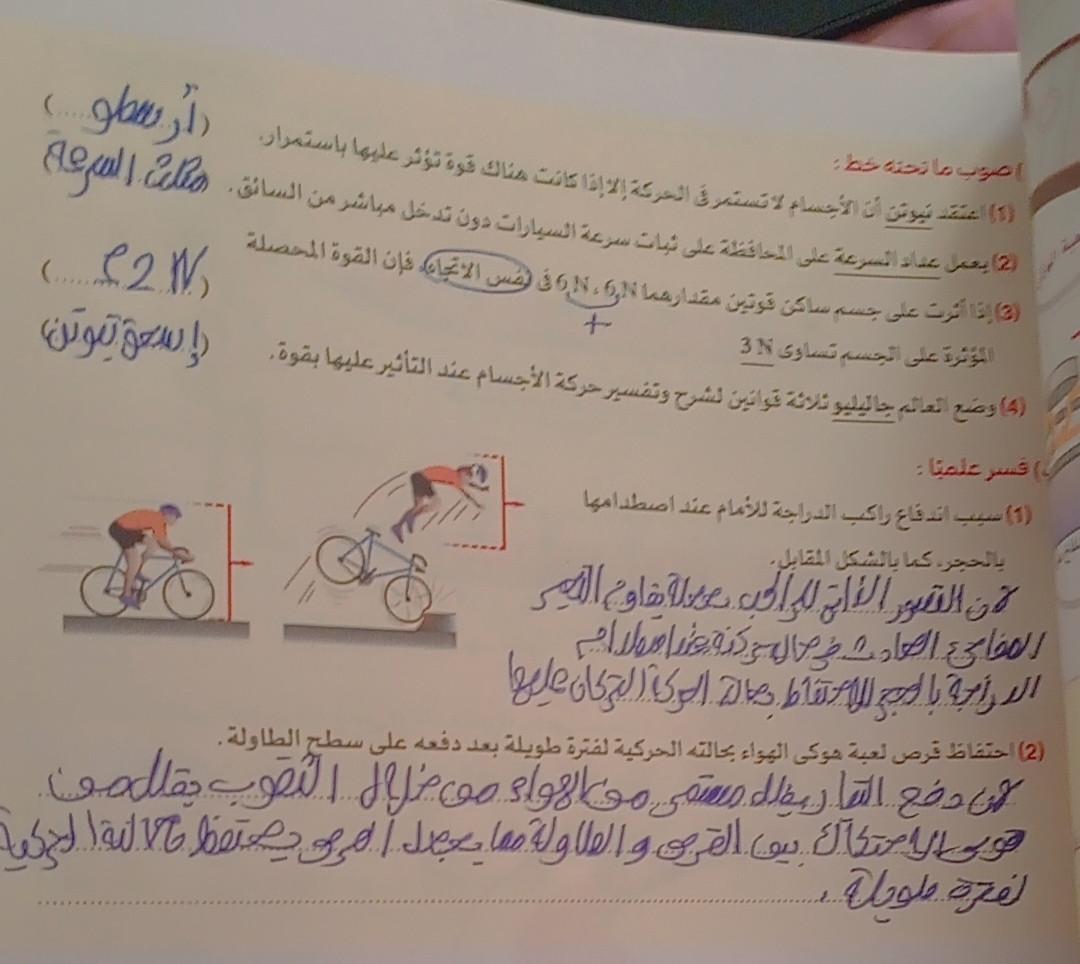 صوب ما تحته خط :
(1) اعتقد نيوتن أن الأجسام لا تستمر في الحركة إلا إذا كانت هناك قوة تؤثر عليها باستمرار. (أرسطو)
(2) يعمل عداد السرعة على المحافظة على ثبات سرعة السيارات دون تدخل مباشر من السائق. مثبت السرعة
(3) إذا أثرت على جسم ساكن قوتين مقدارهما 6 N ، 6 N في نفس الاتجاه، فإن القوة المحصلة
+
المؤثرة على الجسم تساوى 3 N (12 N)
(4) وضع العالم جاليليو ثلاثة قوانين لشرح وتفسير حركة الأجسام عند التأثير عليها بقوة. (إسحق نيوتن)
فسر علميًا :
(1) سبب اندفاع راكب الدراجة للأمام عند اصطدامها
بالحجر، كما بالشكل المقابل.
لأن القصور الذاتي للراكب يجعله يقاوم التغير
المفاجئ الحادث في حالة حركته عند اصطدام
الدراجة بالحجر للاحتفاظ بحالة الحركة التي كان عليها
(2) احتفاظ قرص لعبة هوكى الهواء بحالته الحركية لفترة طويلة بعد دفعه على سطح الطاولة.
لأن دفع تيار مستمر من الهواء من خلال الثقوب يقلل من
قوى الاحتكاك بين القرص والطاولة مما يجعل القرص يحتفظ بحالته الحركية
لفترة طويلة .